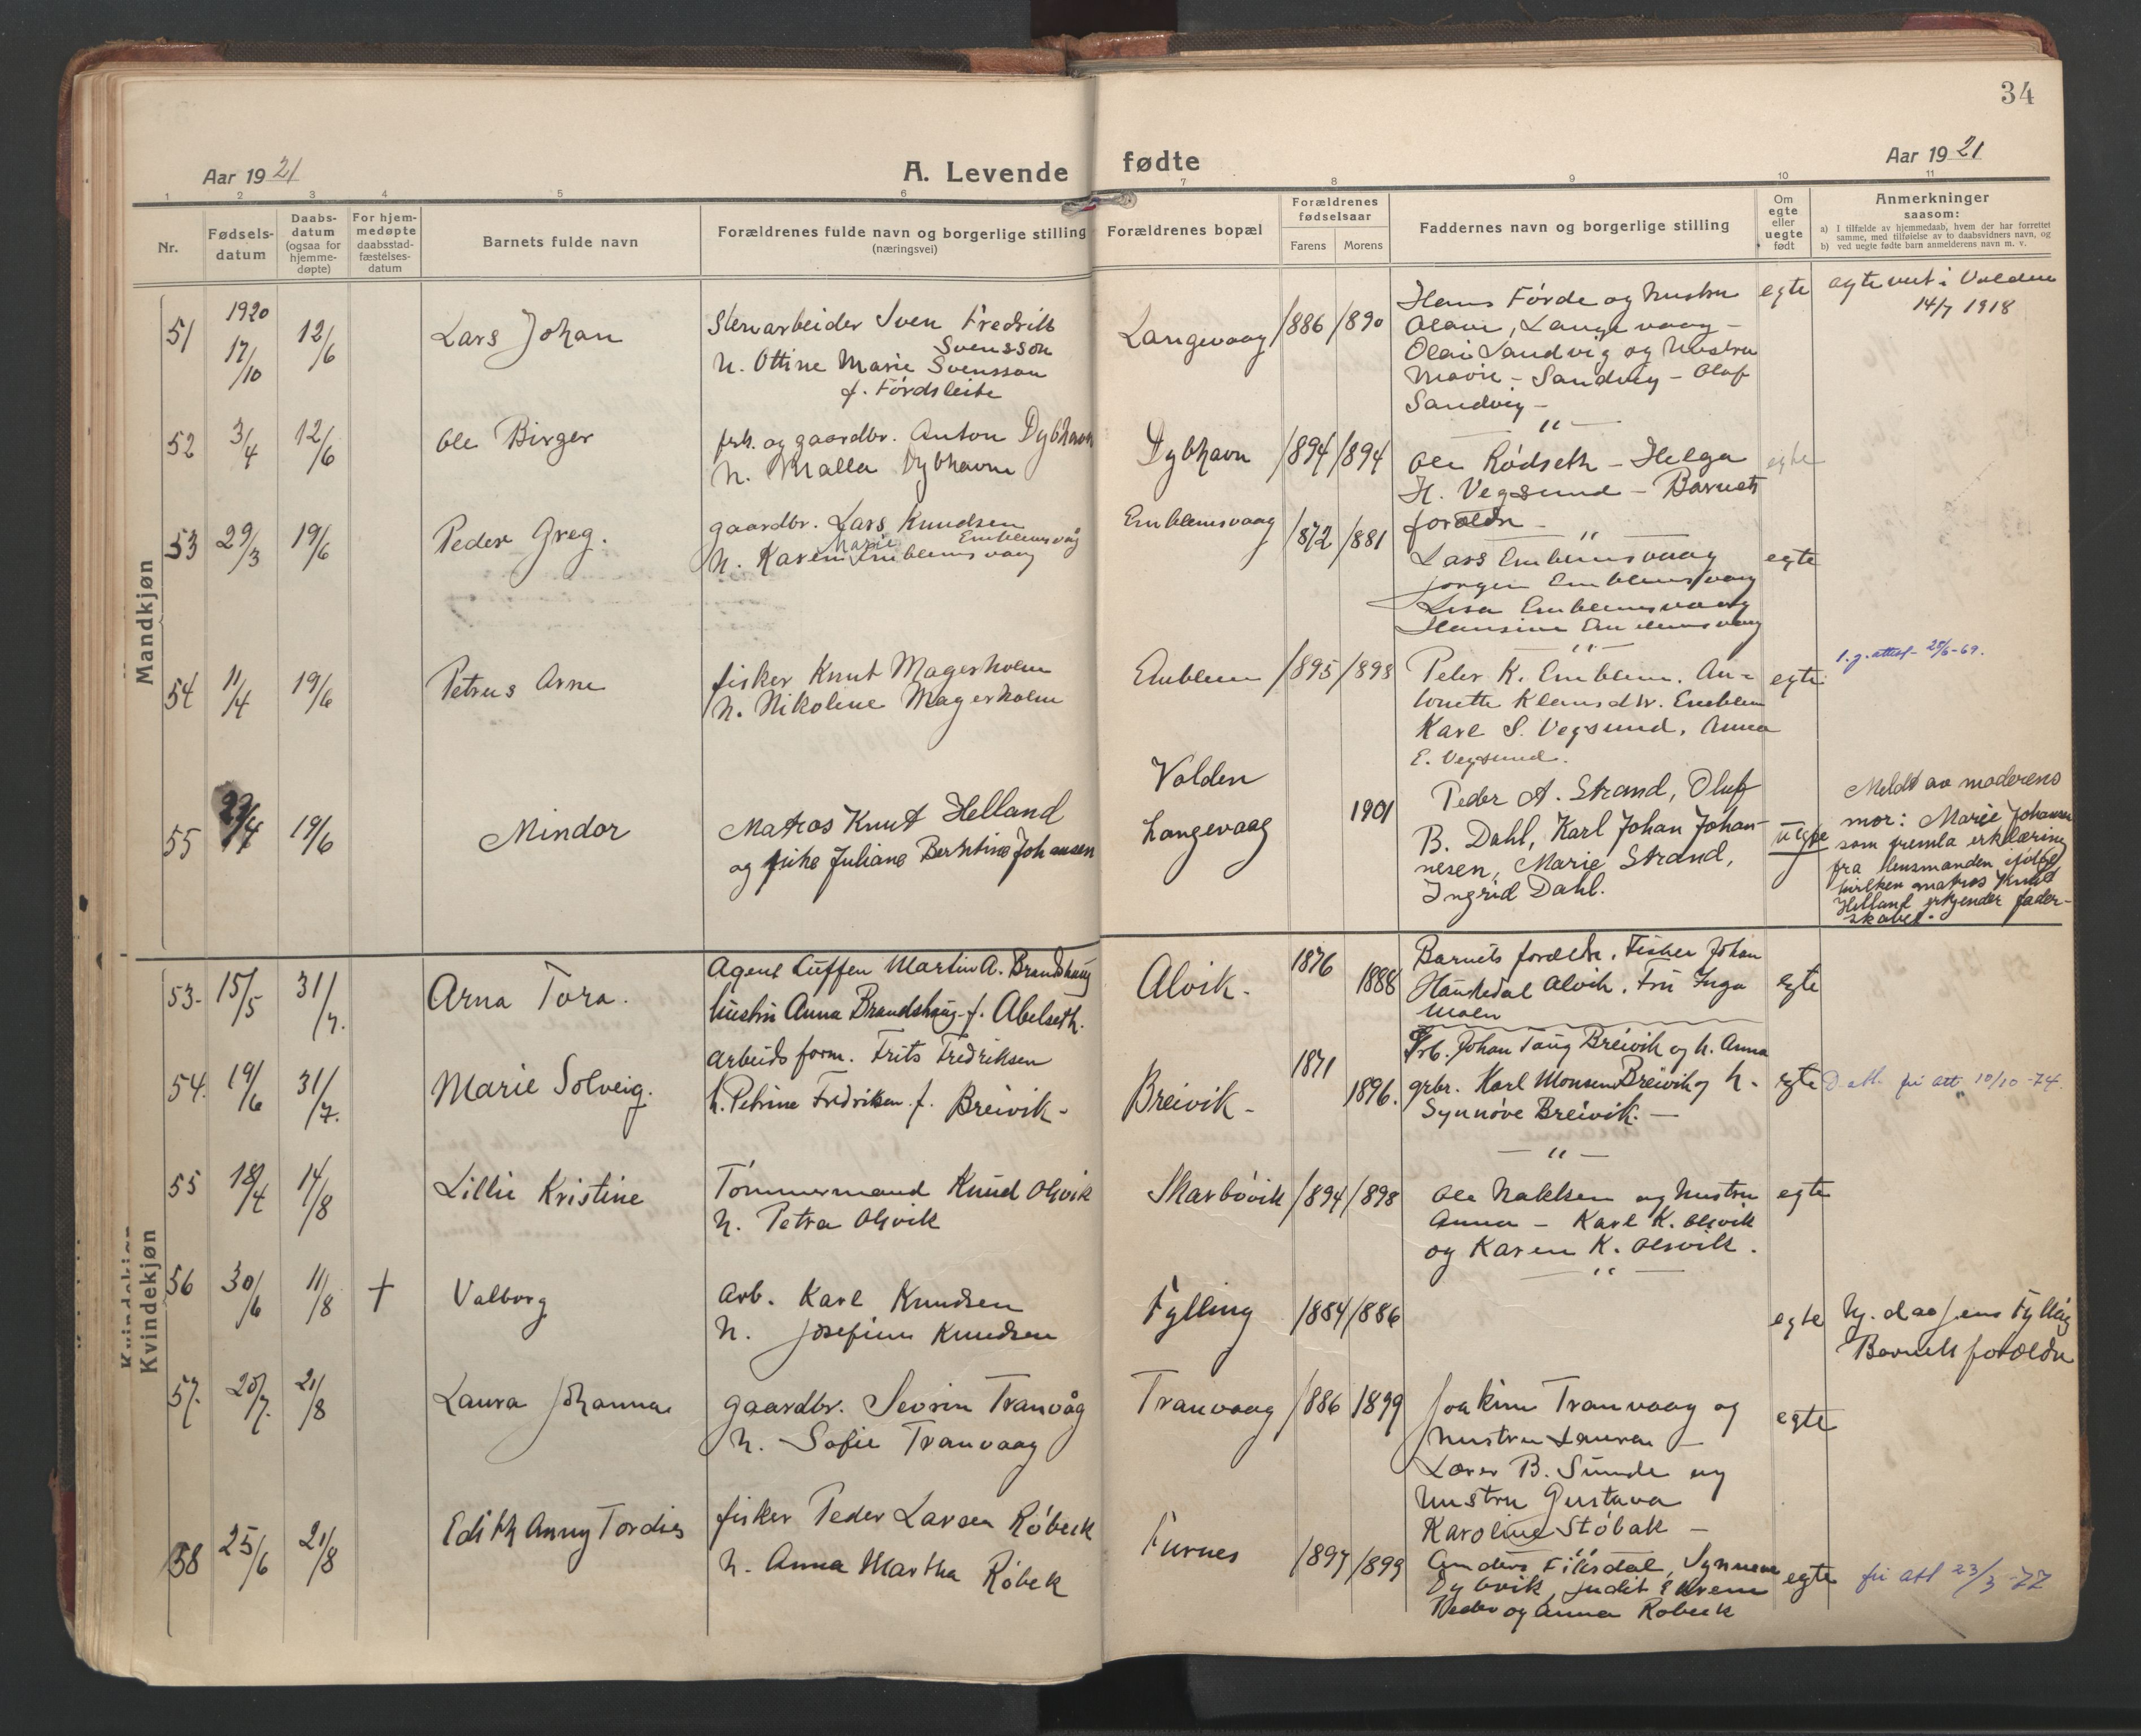 34
Aar 1921
A. Levende fødte
Aar 1921
1 2 3 4 5 6 7 8 9 10 11
Nr.
Fødsels-
datum
Daabs-
datum
(ogsaa for
hjemme-
døpte)
For hjem-
medøpte
daabsstad-
fæstelses-
datum
Barnets fulde navn
Forældrenes fulde navn og borgerlige stilling
(næringsvei)
Forældrenes bopæl
Forældrenes
fødselsaar
Farens
Morens
Faddernes navn og borgerlige stilling
Om
egte
eller
uegte
født
Anmerkninger
saasom:
a) I tilfælde av hjemmedaab, hvem der har forrettet
samme, med tilføielse av to daabsvidners navn, og
b) ved uegte fødte barn anmelderens navn m. v.
Mandkjøn
51
1920
17/10
12/6
Lars Johan
Stenarbeider Sven Fredrik
Svensson
h. Ottine Marie Svensson
f. Fórdsleite
Langevaag
1886
1890
Hans Fórde og hustru
Olave, Langevaag -
Olai Sandvig og hustru
Marie - Sandvig - Olaf
Sandvig -
egte
egte viet i Volden
14/7 1918
52
3/4
12/6
Ole Birger
fisk. og gaardbr. Anton Dybhavn
h. Malla Dybhavn
Dybhavn
1894
1894
— " —
Ole Ródseth - Helga
H. Vegsund - Barnets
forældre -
egte
53
29/3
19/6
Peder Greg.
gaardbr. Lars Knudsen
Emblemsvåg
h. Karen Marie Emblemsvaag
Emblemsvaag
1872
1881
— " —
Lars Emblemsvaag
Jørgen Emblemsvaag
Lisa Emblemsvaag
Hansine Emblemsvaag
egte
54
11/4
19/6
Petrus Arne
fisker Knut Magerholm
h. Nikoline Magerholm
Emblem
1895
1893
— " —
Peter K. Emblem. An=
tonette Klausdtr. Emblem
Karl S. Vegsund, Anna
E. Vegsund.
egte
f. g. attest - 25/6-69.
55
19/6
Mindor
Matros Knut Helland
og pike Juliane Berntine Johansen
Volden
Langevaag
1901
Peder A. Strand, Oluf
B. Dahl, Karl Johan Johan-
nesen, Marie Strand,
Ingrid Dahl.
uegte
Meldt av moderens
mor: Marie Johansen
som fremla erklæring
fra lensmanden ifølge
hvilken matros Knut
Helland erkjender fader-
skabet.
Kvindekjøn
53-
15/5
31/7.
Arna Tora.
Agent Martin A. Brandshaug
hustru Anna Brandshaug f. Abelseth.
Alvik-
1876
1888
Barnets forældre, Fisker Johan
Alvik. Fru Inga
Moen
egte
54.
19/6
31/7.
Marie Solveig.
arbeidsform. Frits Fredriksen
h. Petrine Fredriksen f. Breivik-
Breivik-
1871
1896.
Johan Breivik og h. Anna
grbr. Karl Monsen Breivik og h.
Synnøve Breivik. —
egte
fri att 10/10-74.
55
18/4
14/8
Lillie Kristine
Tómmermand Knud Olsvik
h. Petra Olsvik
Skarbóvik
1894
1898
— " —
Ole Nakken og hustru
Anna - Karl K. Olsvik
og Karen K. Olsvik.
egte
56
30/6
11/8
+
Valborg
Arb. Karl Knudsen
h. Josefine Knudsen
Fylling
1884
1886
— " —
egte
Hj. d. av Jens Fylling
Barnets forældre
57.
20/7.
21/8
Laura Johanna
gaardbr. Sevrin Tranvåg
h. Sofie Tranvaag
Tranvaag
1886
1899
Joakim Tranvaag og
hustru Laura —
Lærer B. Sunde og
hustru Gustava
Karoline Stóbak -
egte
58
25/6
21/8
Edith Anny Tordis
fisker Peder Larsen Róbeck
h. Anna Martha Róbek
Furnes
1897
1899
— " —
Anders Fiksdal, Synnøve
Dybvik, Judit Ekrem
Peder og Anna Robeck
egte
fri att 23/3-77